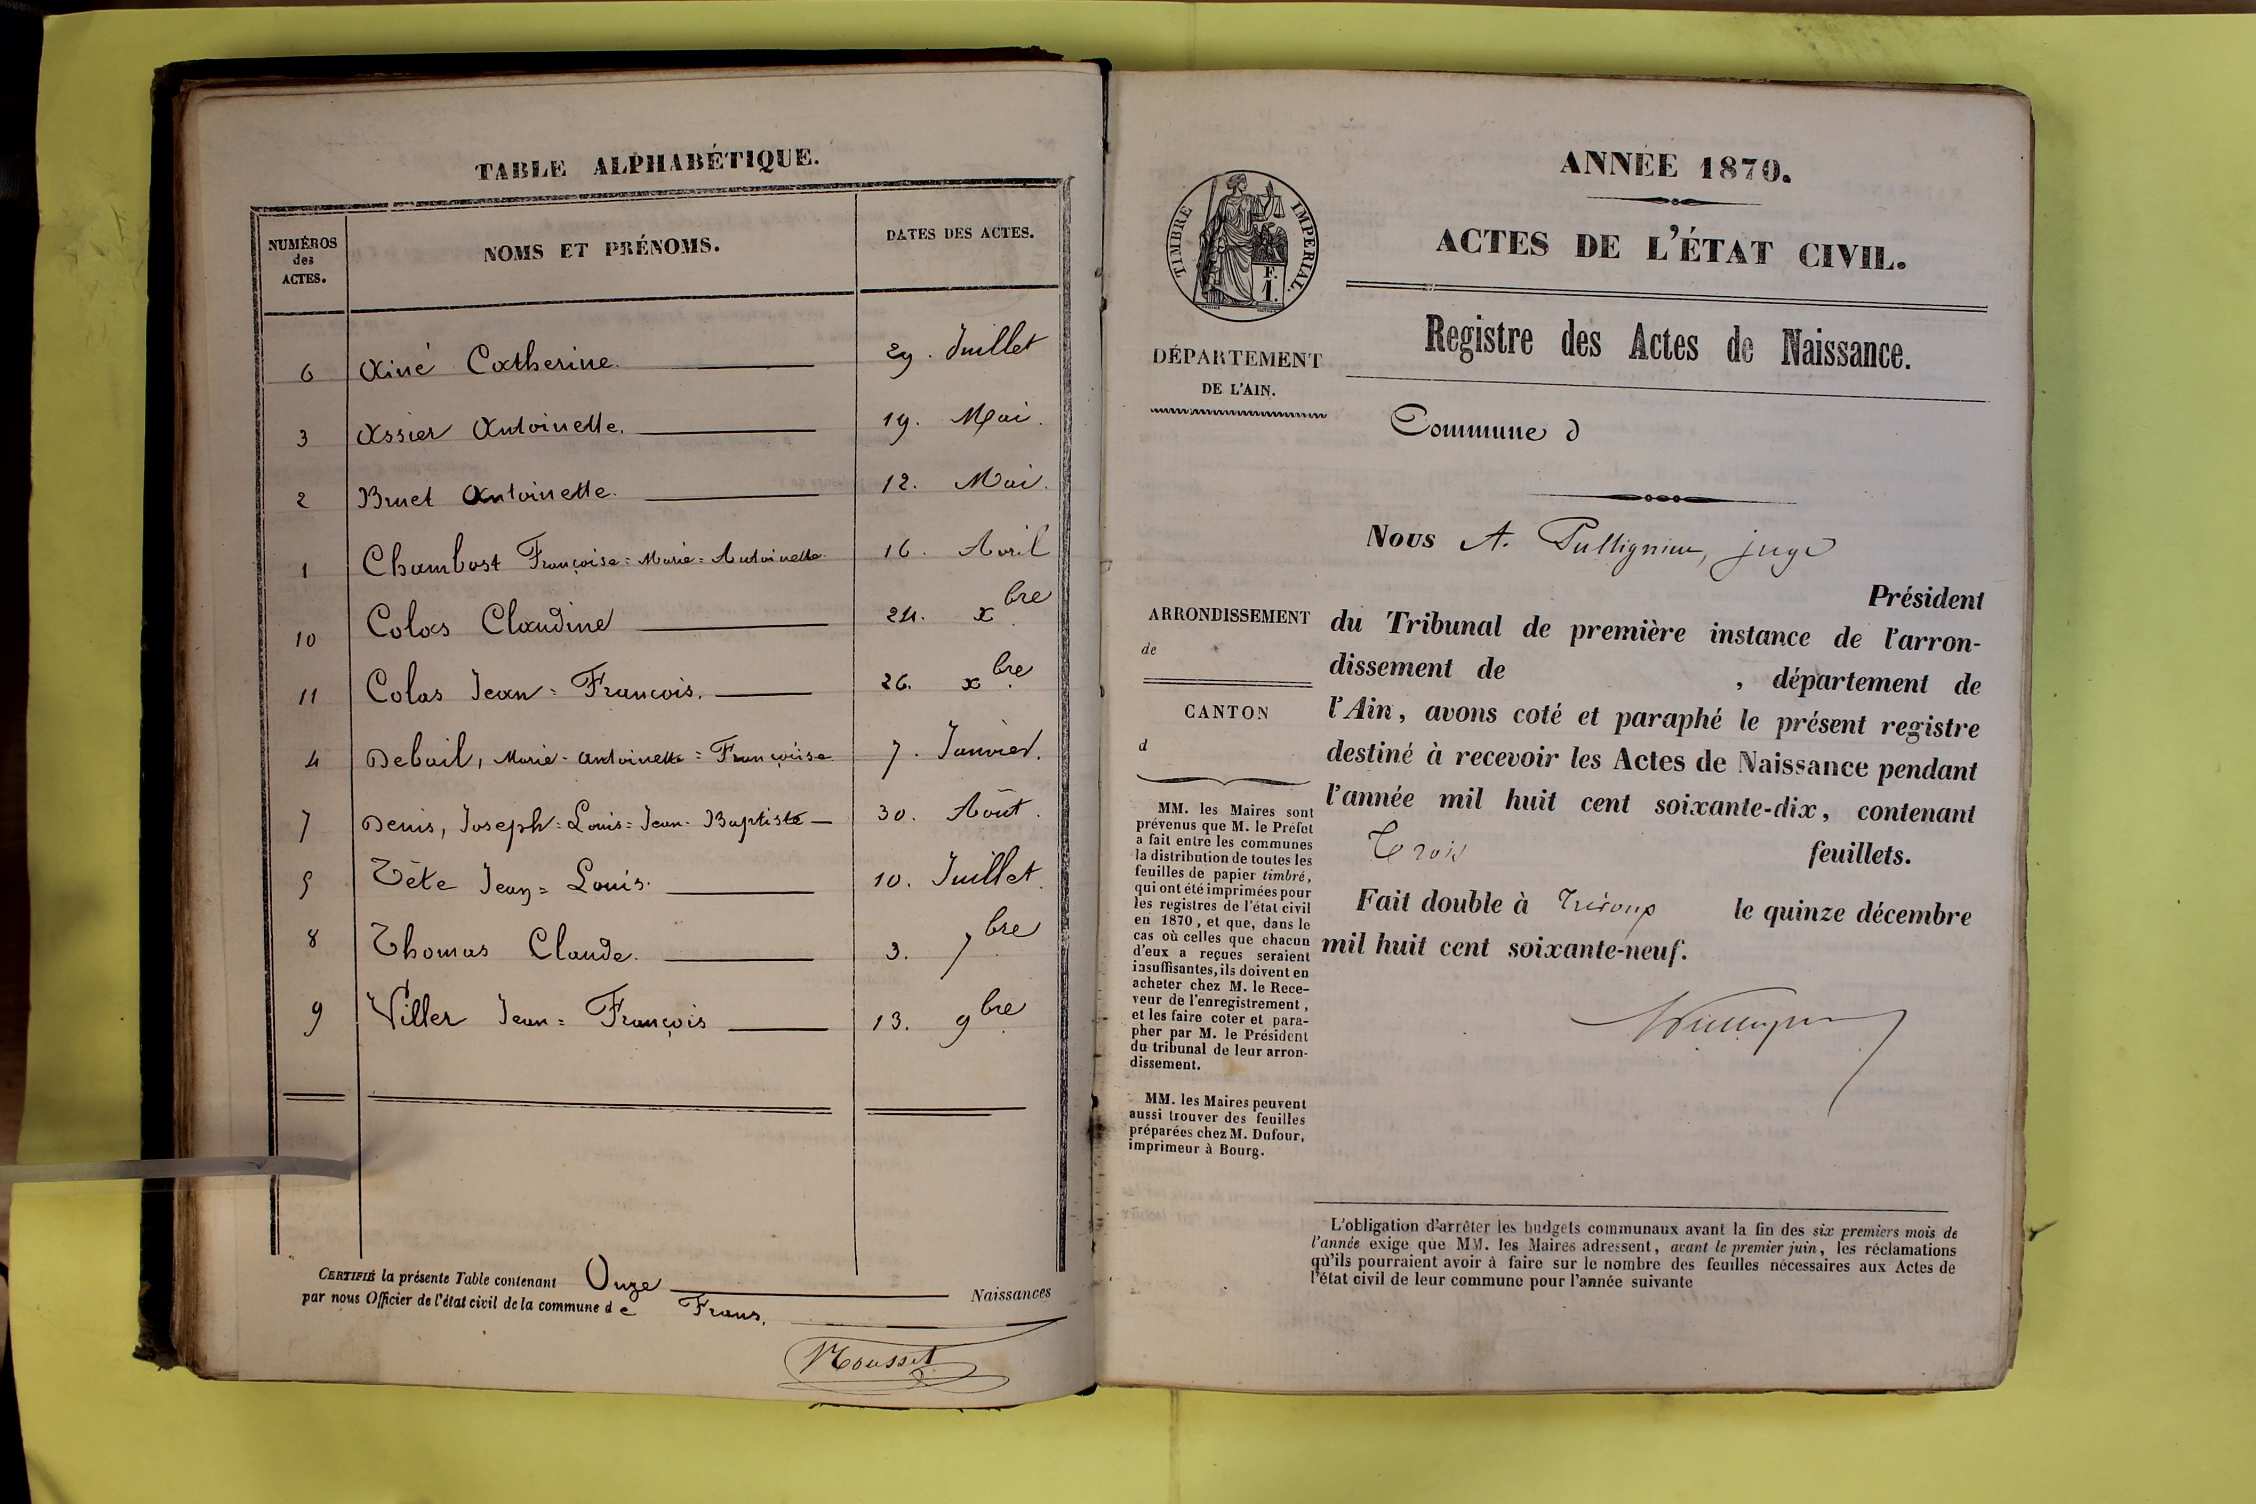 TABLE ALPHABÉTIQUE.
NUMÉROS des ACTES.
NOMS ET PRÉNOMS.
DATES DES ACTES.
6 Ainé Catherine. 29. Juillet
3 Assier Antoinette. 19. Mai.
2 Bruet Antoinette. 12. Mai.
1 Chambost Françoise=Marie=Antoinette. 16. Avril
10 Colas Claudine 24. xbre
11 Colas Jean=François. 26. xbre
4 Debail, Marie-Antoinette=Françoise 7. Janvier.
7 Denis, Joseph=Louis=Jean-Baptiste 30. Août.
5 Tête Jean=Louis. 10. Juillet.
8 Thomas Claude. 3. 7bre
9 Viller Jean=François 13. 9bre
CERTIFIÉ la présente Table contenant Onze Naissances
par nous Officier de l'état civil de la commune de Frans.
Mousset
ANNÉE 1870.
ACTES DE L'ÉTAT CIVIL.
TIMBRE IMPERIAL.
F.
1.
Registre des Actes de Naissance.
DÉPARTEMENT
DE L'AIN.
Commune d
Nous A. juge
Président
ARRONDISSEMENT
de
du Tribunal de première instance de l'arron-
dissement de , département de
CANTON
d
l'Ain, avons coté et paraphé le présent registre
destiné à recevoir les Actes de Naissance pendant
l'année mil huit cent soixante-dix, contenant
Trois feuillets.
Fait double à Trévoux le quinze décembre
mil huit cent soixante-neuf.
MM. les Maires sont
prévenus que M. le Préfet
a fait entre les communes
la distribution de toutes les
feuilles de papier timbré,
qui ont été imprimées pour
les registres de l'état civil
en 1870, et que, dans le
cas où celles que chacun
d'eux a reçues seraient
insuffisantes, ils doivent en
acheter chez M. le Rece-
veur de l'enregistrement,
et les faire coter et para-
pher par M. le Président
du tribunal de leur arron-
dissement.
MM. les Maires peuvent
aussi trouver des feuilles
préparées chez M. Dufour,
imprimeur à Bourg.
L'obligation d'arrêter les budgets communaux avant la fin des six premiers mois de
l'année exige que MM. les Maires adressent, avant le premier juin, les réclamations
qu'ils pourraient avoir à faire sur le nombre des feuilles nécessaires aux Actes de
l'état civil de leur commune pour l'année suivante